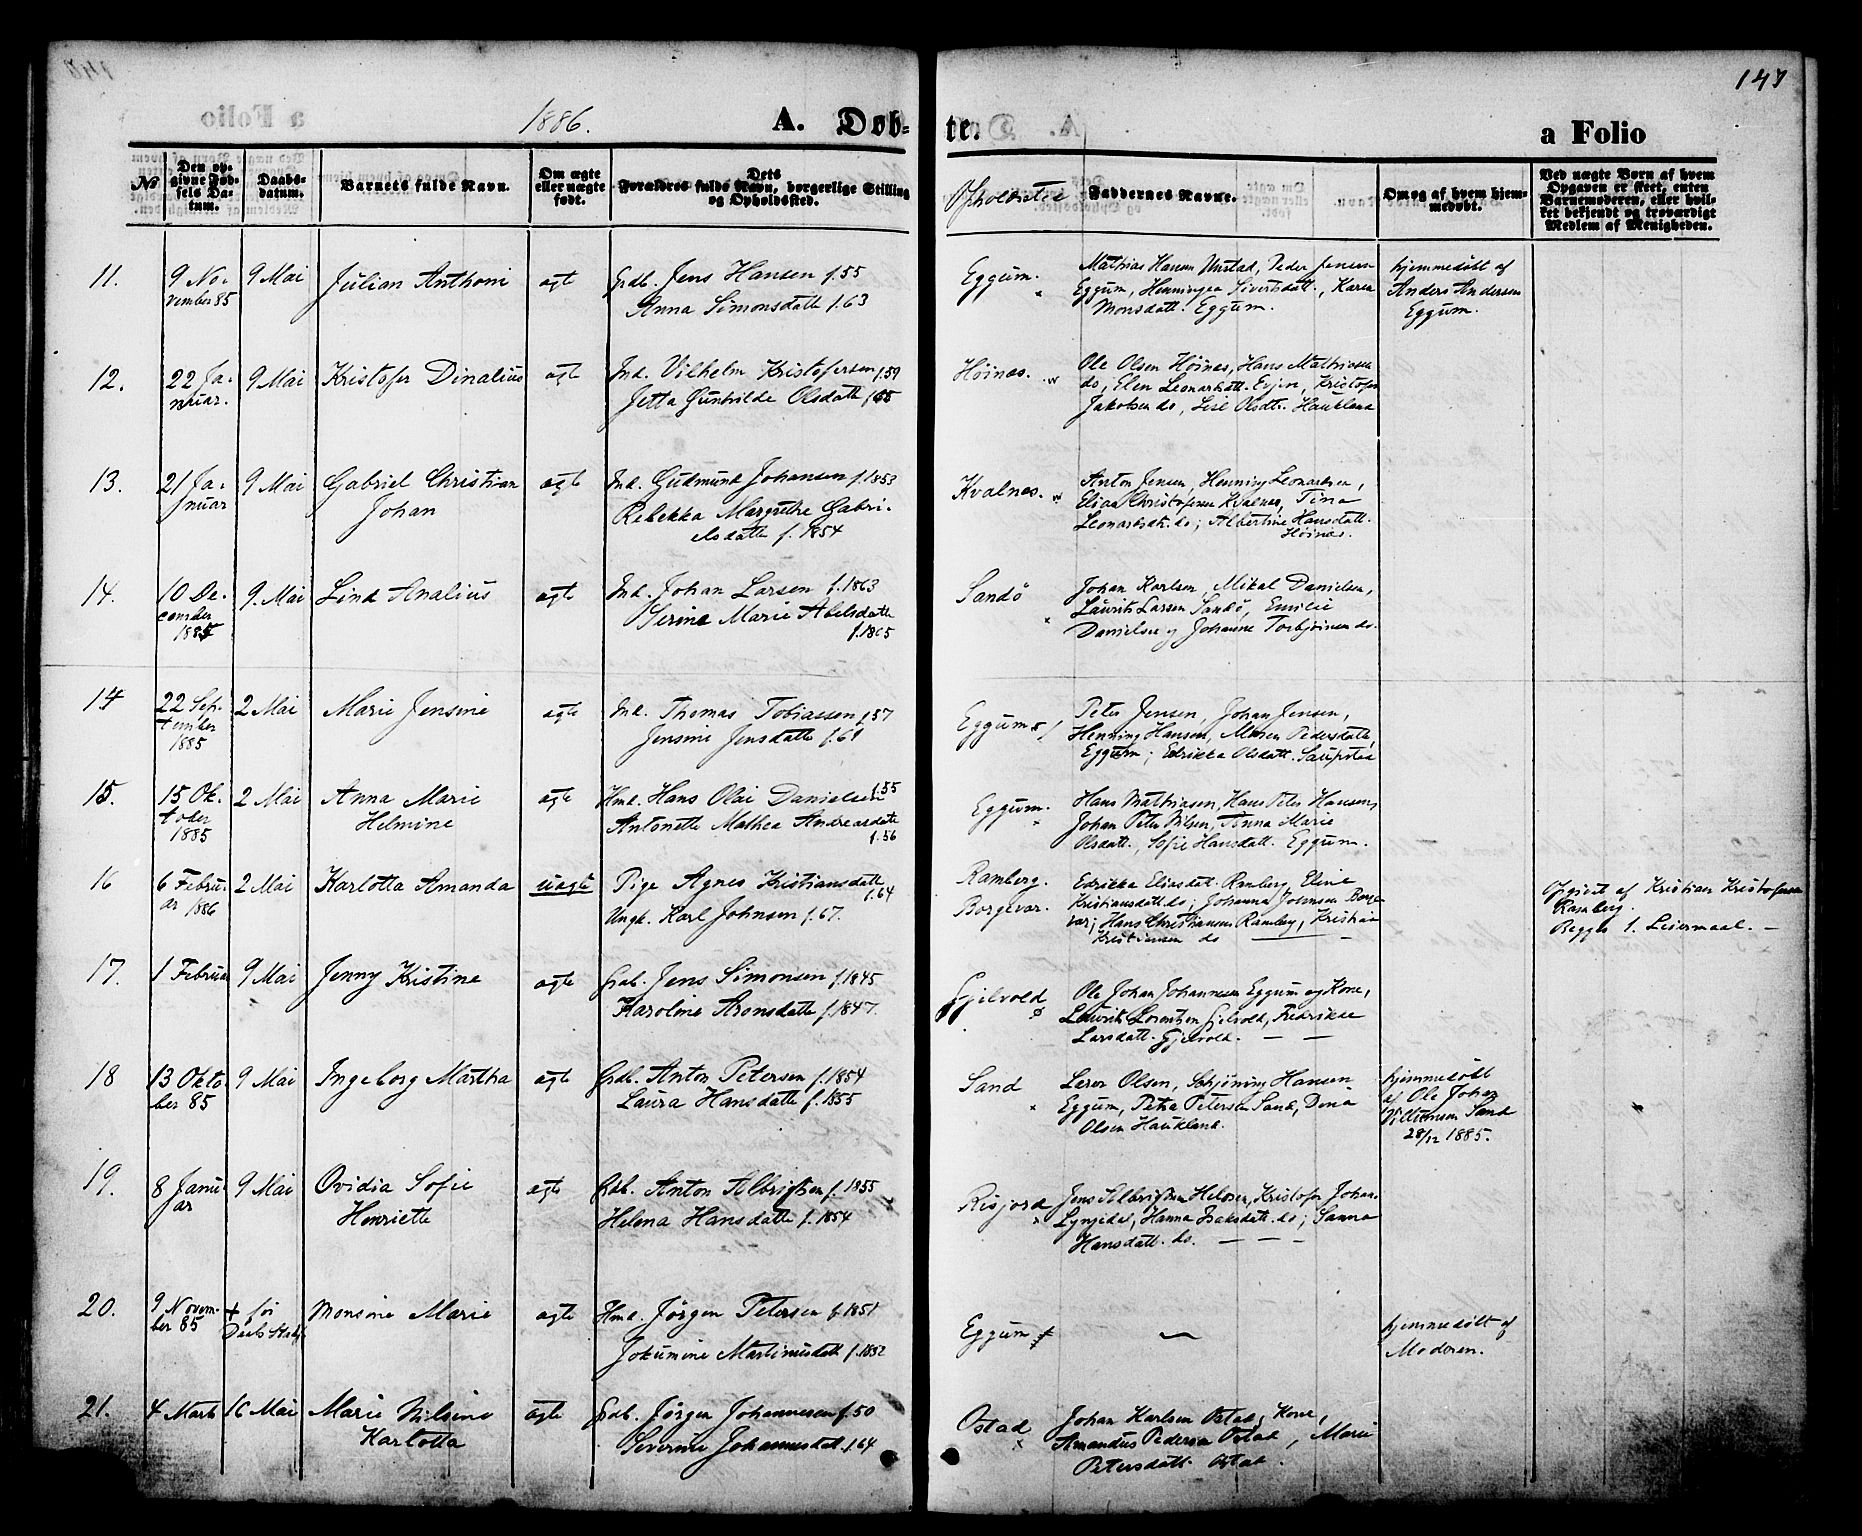 1886. A. Døb-
te. a Folio 147
No
Den op-
givne Fød-
sels Da-
tum.
Daabs-
datum.
Barnets fulde Navn.
Om ægte
eller uægte
født.
Dets
Forældres fulde Navn, borgerlige Stilling
og Opholdssted.
Opholdssted
Faddernes Navne.
Om og af hvem hjem-
medøbt.
Ved uægte Børn af hvem
Opgaven er skeet, enten
Barnemoderen, eller hvil-
ket bekjendt og troværdigt
Medlem af Menigheden.
11. 9 No-
vember 85
9 Mai
Julian Anthoni
ægte
Grdb. Jens Hansen f. 55
Anna Simonsdatte f. 63
Eggum.
Mathias Hansen Unstad, Peder Jensen
Eggum, Henningea Sivertsdatt., Karen
Monsdatt. Eggum.
hjemmedøbt af
Anders Andersen
Eggum.
12. 22 Ja-
nuar.
9 Mai
Kristofer Dinalius
ægte
Ind. Vilhelm Kristofersen f. 59
Jetta Gunhilde Olsdatte
Høinæs.
Ole Olsen Høinæs, Hans Mathiesen
do, Elen Leonardsdatt. Evjen, Kristofer
Jakobsen do, Lise Olsdtr. Haukland
13. 21 Ja-
nuar
9 Mai
Gabriel Christian
Johan
ægte
Ind. Gudmund Johansen f. 1853
Rebekka Margrethe Gabri-
elsdatte f. 1854
Kvalnæs.
Anton Jensen, Henning Leonardsen,
Elias Christofersen Kvalnæs, Tina
Leonardsdtr. do; Albertine Hansdatt.
Høinæs.
14. 10 De-
cember
1885
9. Mai
Lind Analius
ægte
Ind. Johan Larsen f. 1863
Serine Marie Abelsdatte
f. 1865
Sandø
Johan Karlsen, Mikal Danielsen,
Laurits Larsen Sandø, Emilie
Danielsen og Johanne Torbjørnsen do.
14 22 Sep-
tember
1885
2 Mai
Marie Jensine
ægte
Ind. Thomas Tobiassen f. 57
Jensine Jensdatte f. 61
Eggum
Peter Jensen, Johan Jensen,
Henning Hansen, Maren Pedersdatte,
Eggum; Edrikka Olsdatt. Saupstad
15. 15 Ok-
tober
1885
2 Mai
Anna Marie
Helmine
ægte
Hmd. Hans Olai Danielsen f. 55
Antonette Mathea Andreasdatte
f. 56
Eggum.
Hans Mathiasen, Hans Peter Hansen,
Johan Peter Nilsen, Anna Marie
Olsdatt., Sofie Hansdatt. Eggum.
16 6 Febru-
ar 1886
2 Mai
Karlotta Amanda
uægte
Pige Agnes Kristiansdatte
f. 64
Ungk. Karl Johnsen f. 67.
Ramberg.
Borgevær.
Edrikka Eliasdatt. Ramberg, Eline
Kristiansdatt. do; Johanna Johnsen Borge-
vær; Hans Christiansen Ramberg, Kristian
Kristiansen do
Opgivet af Kristian Kristofersen
Ramberg.
Begges 1. Leiermaal.
17. 1 Februar
9 Mai
Jenny Kristine
ægte
Grdb. Jens Simonsen f. 1845
Karoline Aronsdatte f. 1847.
Gjelvold
Ole Johan Johannesen Eggum og Kone,
Laurits Lorentzen Gjelvold, Fredrikke
Larsdatt. Gjelvold.
18 13 Okto-
ber 85
9 Mai
Ingeborg Martha
ægte
Grdb. Anton Petersen f. 1854
Laura Hansdatte f. 1855
Sand
Olsen, Schjøning Hansen
Eggum, Petra Petersen Sand, Dina
Olsen Haukland.
hjemmedøbt
af Ole Johan
Villumsen Sand
28/12 1885.
19. 8 Janu-
ar
9 Mai
Ovidia Sofie
Henriette
ægte
Grdb. Anton Albrigtsen f. 1855
Helena Hansdatte f. 1854
Risjord
Jens Albrigtsen Helosen, Kristofer Johan.
Lyngedal, Hanna Isaksdatt. do; Sanna
Hansdatt. do.
20. 9 Novem-
ber 85
+ før
Daab Stadf.
Monsine Marie
ægte
Hmd. Jørgen Petersen f. 1851
Jokumine Martinusdatt f. 1852
Eggum
hjemmedøbt af
Moderen.
21. 4 Marts
16 Mai
Marie Nilsine
Karlotta
ægte
Grdb. Jørgen Johannesen f. 50
Severine Johannesdat. f. 64
Ostad
Johan Karlsen Ostad, Kone,
Amandus Pedersen Ostad, Marie
Petersdatt. Ostad.